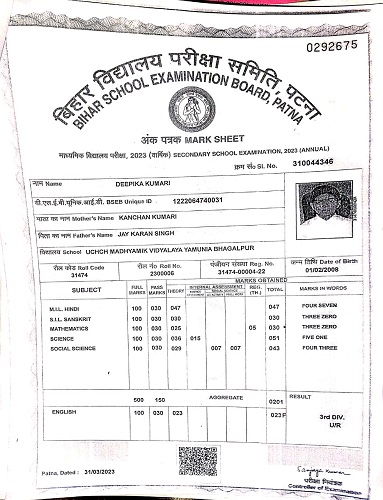 0292675
बिहार विद्यालय परीक्षा समिति, पटना
BIHAR SCHOOL EXAMINATION BOARD, PATNA
अंक पत्रक MARK SHEET
माध्यमिक विद्यालय परीक्षा, 2023 (वार्षिक) SECONDARY SCHOOL EXAMINATION, 2023 (ANNUAL)
क्रम सं० Sl. No. 310044346
नाम Name DEEPIKA KUMARI
बी.एस.ई.बी.यूनिक.आई.डी. BSEB Unique ID 1222064740031
माता का नाम Mother's Name KANCHAN KUMARI
पिता का नाम Father's Name JAY KARAN SINGH
विद्यालय School UCHCH MADHYAMIK VIDYALAYA YAMUNIA BHAGALPUR
रौल कोड Roll Code रौल नं० Roll No. पंजीयन संख्या Reg. No. जन्म तिथि Date of Birth
31474 2300006 31474-00004-22 01/02/2008
MARKS OBTAINED
SUBJECT FULL MARKS PASS MARKS THEORY INTERNAL ASSESSMENT REG. (TH.) TOTAL MARKS IN WORDS
M.I.L. HINDI 100 030 047 047 FOUR SEVEN
S.I.L. SANSKRIT 100 030 030 030 THREE ZERO
MATHEMATICS 100 030 025 05 030 * THREE ZERO
SCIENCE 100 030 036 015 051 FIVE ONE
SOCIAL SCIENCE 100 030 029 007 007 043 FOUR THREE
500 150 AGGREGATE 0201 RESULT
ENGLISH 100 030 023 023F 3rd DIV.
U/R
Patna, Dated : 31/03/2023
Sanjay Kumar
परीक्षा नियंत्रक
Controller of Examination